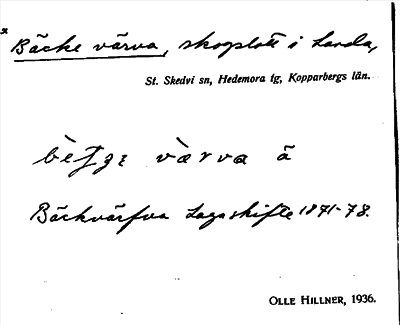 * Bäcke värva, skogslott i Landa,
St. Skedvi sn, Hedemora tg, Kopparbergs län.
värva ä
Bäckvärfva Lagaskifte 1871-78.
OLLE HILLNER, 1936.